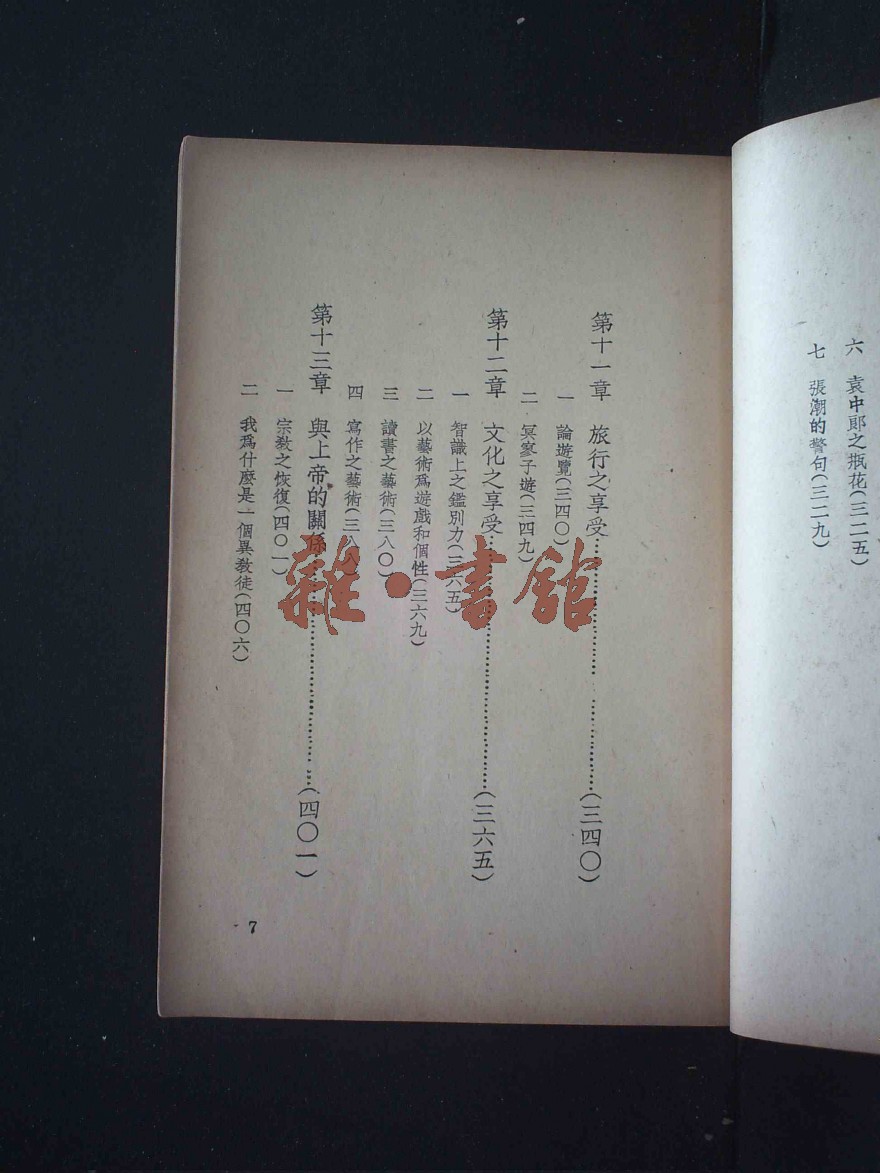 六　袁中郎之瓶花(三二五)
七　張潮的警句(三二九)
第十一章　旅行之享受……………………(三四〇)
一　論遊覽(三四〇)
二　冥寥子遊(三四九)
第十二章　文化之享受……………………(三六五)
一　智識上之鑑別力(三六五)
二　以藝術爲遊戲和個性(三六九)
三　讀書之藝術(三八〇)
四　寫作之藝術(三八八)
第十三章　與上帝的關係……………………(四〇一)
一　宗教之恢復(四〇一)
二　我爲什麼是一個異教徒(四〇六)
7
雜·書館